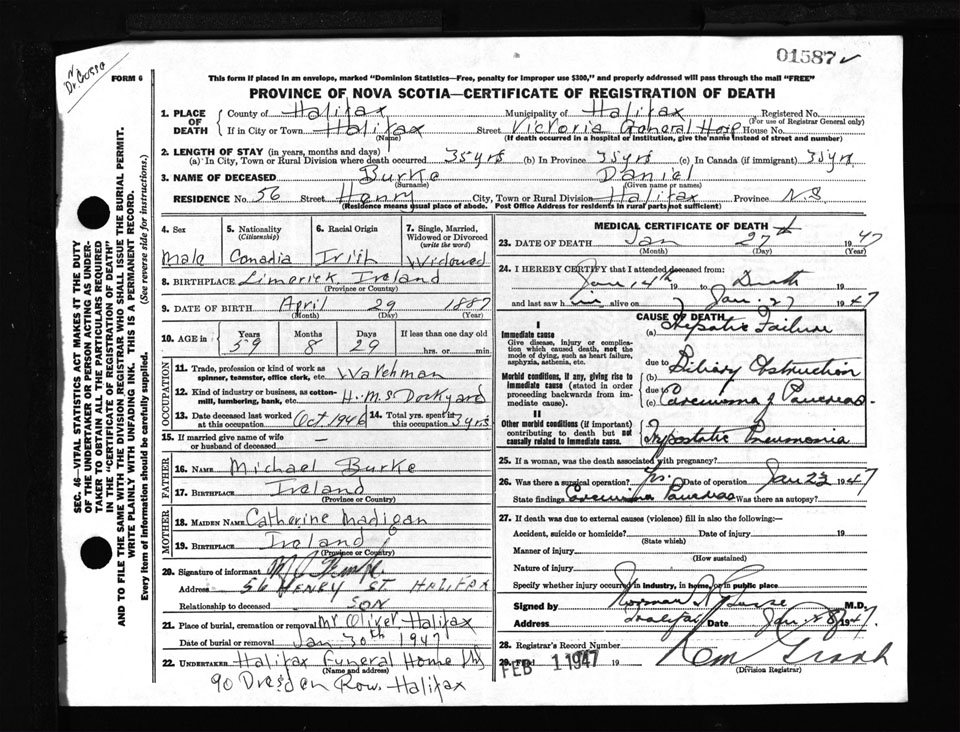 01587
Dr. Gosse
FORM 6
This form if placed in an envelope, marked "Dominion Statistics—Free, penalty for improper use $300," and properly addressed will pass through the mail "FREE"
PROVINCE OF NOVA SCOTIA—CERTIFICATE OF REGISTRATION OF DEATH
SEC. 46—VITAL STATISTICS ACT MAKES IT THE DUTY
OF THE UNDERTAKER OR PERSON ACTING AS UNDER-
TAKER TO OBTAIN ALL THE PARTICULARS REQUIRED
IN THE "CERTIFICATE OF REGISTRATION OF DEATH"
AND TO FILE THE SAME WITH THE DIVISION REGISTRAR WHO SHALL ISSUE THE BURIAL PERMIT.
WRITE PLAINLY WITH UNFADING INK. THIS IS A PERMANENT RECORD.
Every item of information should be carefully supplied. (See reverse side for instructions.)
1. PLACE OF DEATH County of Halifax Municipality of Halifax Registered No.
(For use of Registrar General only)
If in City or Town Halifax Street Victoria General Hosp House No.
(Name) (If death occurred in a hospital or institution, give the name instead of street and number)
2. LENGTH OF STAY (in years, months and days)
(a) In City, Town or Rural Division where death occurred 35 yrs (b) In Province 35 yrs (c) In Canada (if immigrant) 35 yrs
3. NAME OF DECEASED Burke Daniel
(Surname) (Given name or names)
RESIDENCE No. 56 Street Henry City, Town or Rural Division Halifax Province N.S
(Residence means usual place of abode. Post Office Address for residents in rural parts not sufficient)
4. Sex 5. Nationality (Citizenship) 6. Racial Origin 7. Single, Married, Widowed or Divorced (write the word)
Male Canadia Irish Widowed
8. BIRTHPLACE Limerick Ireland
(Province or Country)
9. DATE OF BIRTH April 29 1887
(Month) (Day) (Year)
10. AGE in Years Months Days If less than one day
59 8 29 hrs. or min.
OCCUPATION
11. Trade, profession or kind of work as spinner, teamster, office clerk, etc. Watchman
12. Kind of industry or business, as cotton-mill, lumbering, bank, etc. H.M.S Dockyard
13. Date deceased last worked at this occupation Oct 1946 14. Total yrs. spent in this occupation 3 yrs
15. If married give name of wife or husband of deceased —
FATHER
16. NAME Michael Burke
17. BIRTHPLACE Ireland
(Province or Country)
MOTHER
18. MAIDEN NAME Catherine Madigan
19. BIRTHPLACE Ireland
(Province or Country)
20. Signature of informant
Address 56 HENRY ST. HALIFAX
Relationship to deceased SON
21. Place of burial, cremation or removal Mt Olivet Halifax
Date of burial or removal Jan 30th 1947
22. UNDERTAKER Halifax Funeral Home
(Name and address)
90 Dresden Row. Halifax
MEDICAL CERTIFICATE OF DEATH
23. DATE OF DEATH Jan 27th 1947
(Month) (Day) (Year)
24. I HEREBY CERTIFY that I attended deceased from:
Jan 14th 19 to Death 19
and last saw him alive on Jan. 27 1947
CAUSE OF DEATH
I
Immediate cause
Give disease, injury or complication which caused death, not the mode of dying, such as heart failure, asphyxia, asthenia, etc.
(a) Hepatic Failure
due to
Morbid conditions, if any, giving rise to immediate cause (stated in order proceeding backwards from immediate cause).
(b) Biliary Obstruction
due to
(c) Carcinoma of Pancreas.
II
Other morbid conditions (if important) contributing to death but not causally related to immediate cause.
Hypostatic Pneumonia
25. If a woman, was the death associated with pregnancy?
26. Was there a surgical operation? Yes. Date of operation Jan 23 1947
State findings Carcinoma Pancreas Was there an autopsy?
27. If death was due to external causes (violence) fill in also the following:—
Accident, suicide or homicide? Date of injury 19
(State which)
Manner of injury
(How sustained)
Nature of injury
Specify whether injury occurred in industry, in home, or in public place
Signed by Norman Gosse M.D.
Address Halifax Date Jan 28 1947.
28. Registrar's Record Number
29. Filed FEB 1 1947 19
(Division Registrar)